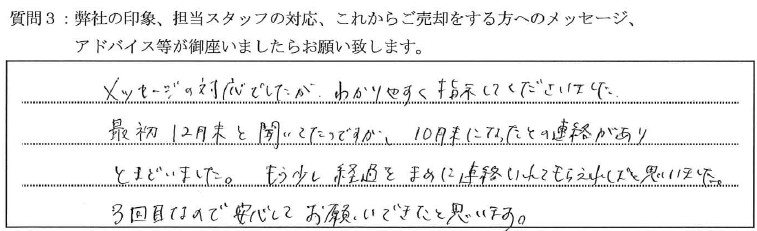 質問３：弊社の印象、担当スタッフの対応、これからご売却をする方へのメッセージ、
アドバイス等が御座いましたらお願い致します。
メッセージの対応でしたが、わかりやすく指示してくださいました。
最初 12月末と聞いてたのですが、10月末になったとの連絡があり
とまどいました。 もう少し 経過を まめに連絡いれてもらえればと思いました。
3回目なので 安心して お願いできたと思います。